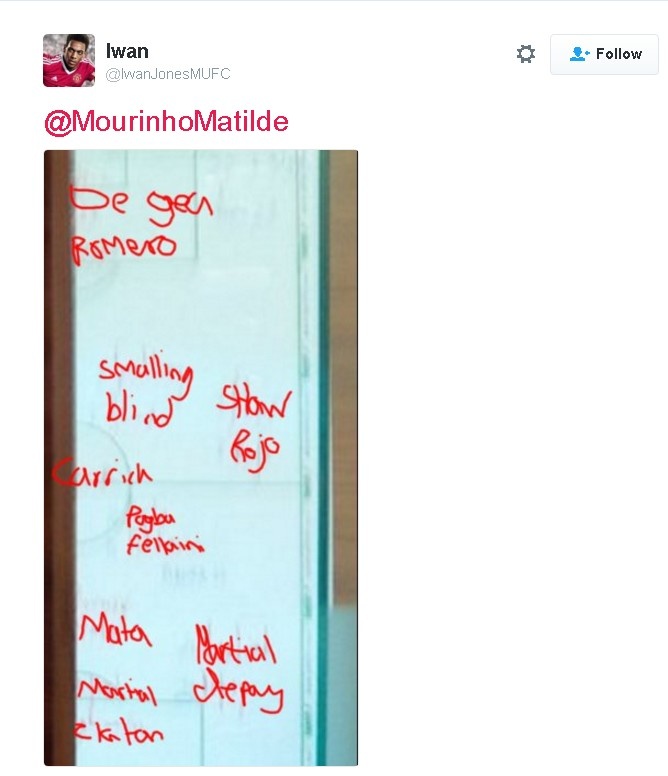 Iwan
@IwanJonesMUFC
Follow
@MourinhoMatilde
De gea
Romero
smalling
blind
SHaw
Rojo
Carrick
Pogba
fellaini
Mata
Martial
Martial
depay
zlatan